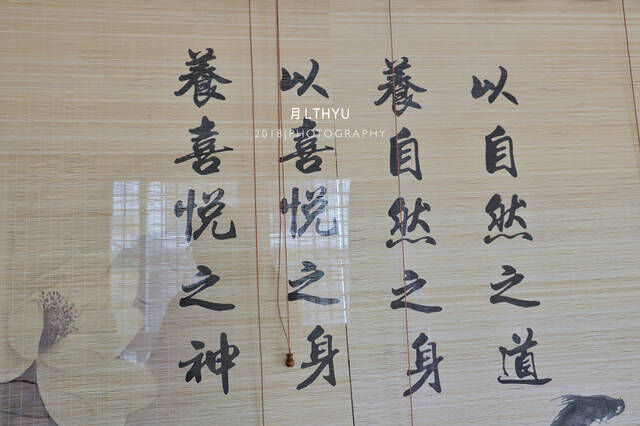 以自然之道
養自然之身
以喜悦之身
養喜悦之神
月LTHYU
2018|PHOTOGRAPHY